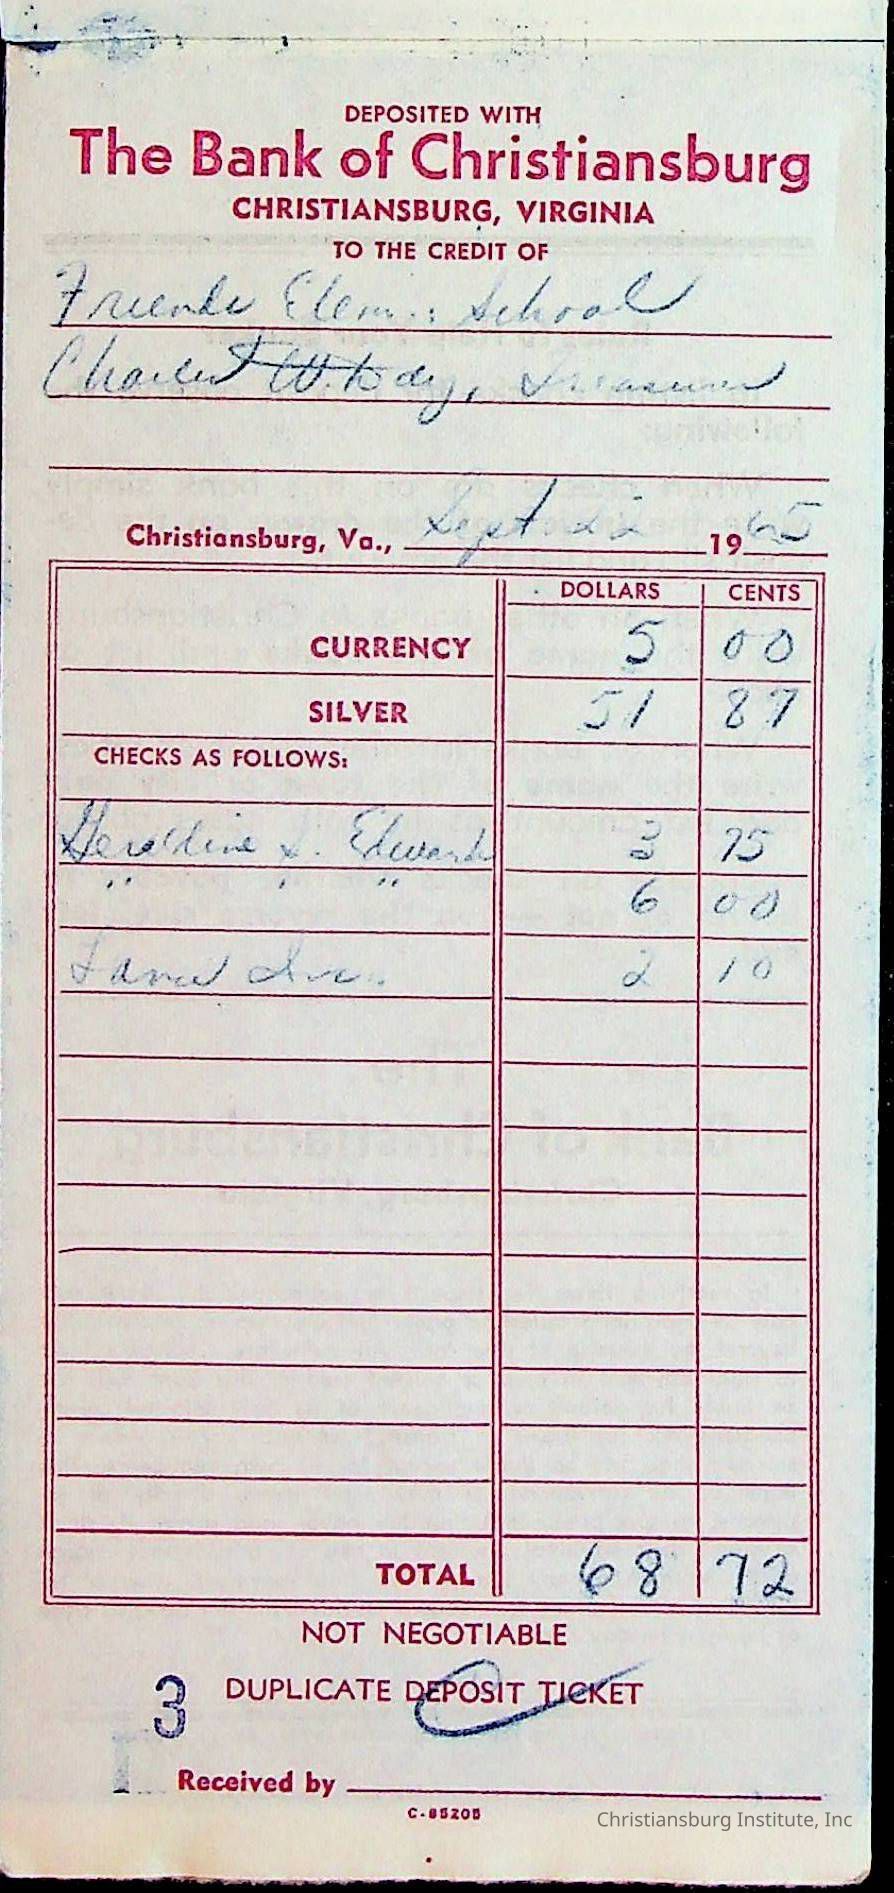 DEPOSITED WITH
The Bank of Christiansburg
CHRISTIANSBURG, VIRGINIA
TO THE CREDIT OF
Friends Elem. School
Charles W. Day, Treasurer
Christiansburg, Va., Sept 22 1965
DOLLARS CENTS
CURRENCY 5 00
SILVER 51 87
CHECKS AS FOLLOWS:
Geraldine S. Edwards 3 75
" " " 6 00
2 10
TOTAL 68 72
NOT NEGOTIABLE
3 DUPLICATE DEPOSIT TICKET
Received by
C-85205
Christiansburg Institute, Inc